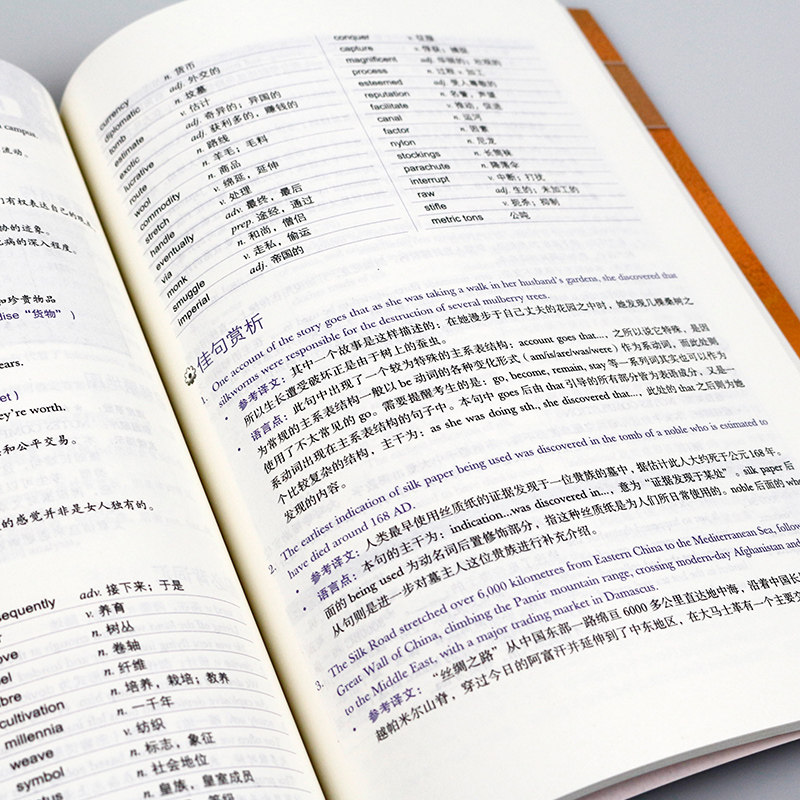 campus.
流动。
们有权表达自己的观点
胁的迹象。
此病的深入程度。
和珍贵物品
dise“货物”）
ears.
et)
ey're worth.
和公平交易。
的感觉并非是女人独有的。
sequently adv. 接下来；于是
v. 养育
ove n. 树丛
el n. 卷轴
bre n. 纤维
cultivation n. 培养，栽培；教养
millennia n. 一千年
weave v. 纺织
symbol n. 标志，象征
atus n. 社会地位
n. 皇族，皇室成员
currency n. 货币
diplomatic adj. 外交的
tomb n. 坟墓
estimate v. 估计
exotic adj. 奇异的；异国的
lucrative adj. 获利多的，赚钱的
route n. 路线
wool n. 羊毛；毛料
commodity n. 商品
stretch v. 绵延，延伸
handle v. 处理
eventually adv. 最终，最后
via prep. 途经，通过
monk n. 和尚，僧侣
smuggle v. 走私，偷运
imperial adj. 帝国的
conquer v. 征服
capture v. 俘获；捕捉
magnificent adj. 华丽的；壮观的
process n. 过程 v. 加工
esteemed adj. 受人尊敬的
reputation n. 名誉，声望
facilitate v. 推动，促进
canal n. 运河
factor n. 因素
nylon n. 尼龙
stockings n. 长筒袜
parachute n. 降落伞
interrupt v. 中断；打扰
raw adj. 生的；未加工的
stifle v. 扼杀；抑制
metric tons 公吨
佳句赏析
1. One account of the story goes that as she was taking a walk in her husband's gardens, she discovered that
silkworms were responsible for the destruction of several mulberry trees.
• 参考译文：其中一个故事是这样描述的：在她漫步于自己丈夫的花园之中时，她发现几棵桑树之
所以生长遭受破坏正是由于树上的蚕虫。
• 语言点：此句中出现了一个较为特殊的主系表结构；account goes that...，之所以说它特殊，是因
为常规的主系表结构一般以 be 动词的各种变化形式（am/is/are/was/were）作为系动词，而此处则
使用了不太常见的 go。需要提醒考生的是：go, become, remain, stay 等一系列词其实也可以作为
系动词出现在主系表结构的句子中。本句中 goes 后由 that 引导的所有部分皆为表语成分，又是一
个比较复杂的结构，主干为：as she was doing sth., she discovered that...，此处的 that 之后则为她
发现的内容。
2. The earliest indication of silk paper being used was discovered in the tomb of a noble who is estimated to
have died around 168 AD.
• 参考译文：人类最早使用丝质纸的证据发现于一位贵族的墓中，据估计此人大约死于公元 168 年。
• 语言点：本句的主干为：indication...was discovered in...，意为“证据发现于某处”。silk paper 后
面的 being used 为动名词后置修饰部分，指这种丝质纸是为人们所日常使用的。noble 后面的 who
从句则是进一步对墓主人这位贵族进行补充介绍。
3. The Silk Road stretched over 6,000 kilometres from Eastern China to the Mediterranean Sea, follow
Great Wall of China, climbing the Pamir mountain range, crossing modern-day Afghanistan and
to the Middle East, with a major trading market in Damascus.
• 参考译文：“丝绸之路”从中国东部一路绵亘 6000 多公里直达地中海，沿着中国长
越帕米尔山脊，穿过今日的阿富汗并延伸到了中东地区，在大马士革有一个主要交